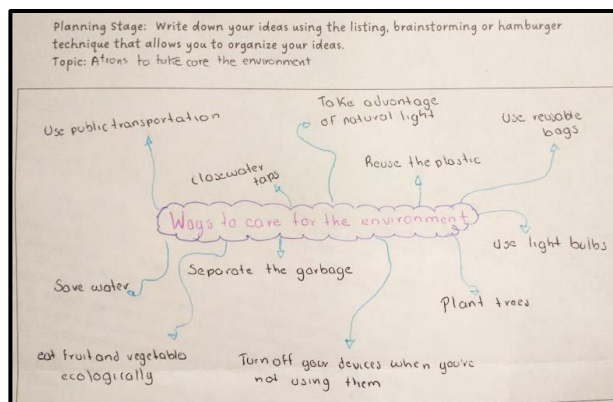 Planning Stage: Write down your ideas using the listing, brainstorming or hamburger
technique that allows you to organize your ideas.
Topic: Ations to take care the environment
Take advantage
of natural light
Use public transportation
Use reusable
bags
close water
taps
Reuse the plastic
Ways to care for the environment
Use light bulbs
Separate the garbage
Save water
Plant trees
eat fruit and vegetables
ecologically
Turn off your devices when you're
not using them